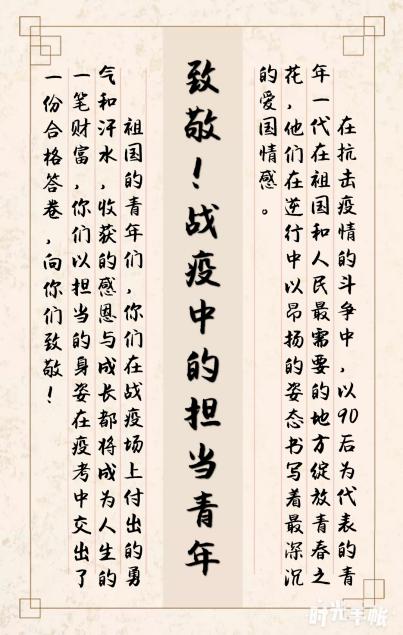 在抗击疫情的斗争中，以90后为代表的青
年一代在祖国和人民最需要的地方绽放青春之
花，他们在逆行中以昂扬的姿态书写着最深沉
的爱国情感。
致敬！战疫中的担当青年
祖国的青年们，你们在战疫场上付出的勇
气和汗水，收获的感恩与成长都将成为人生的
一笔财富，你们以担当的身姿在疫考中交出了
一份合格答卷，向你们致敬！
时光手帐